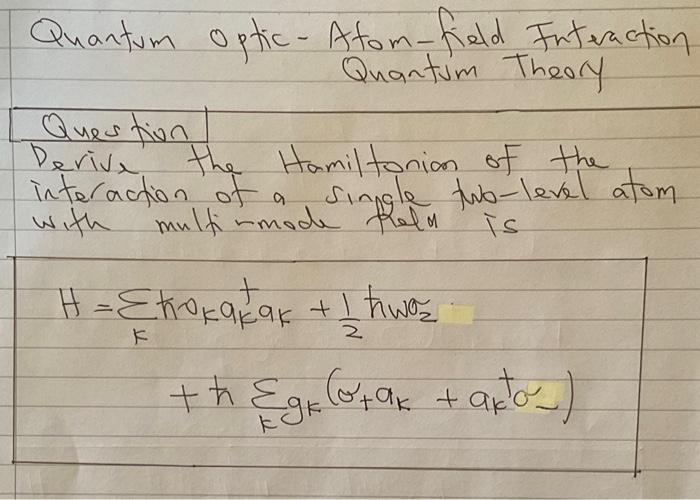 Quantum Optic - Atom-field Interaction
Quantum Theory
Question
Derive the Hamiltonian of the
interaction of a single two-level atom
with multi-mode field is
H = Σ ħυ_K a_K^† a_K + 1/2 ħωσ_z
K
+ ħ Σ g_K (σ_+ a_K + a_K^† σ_-)
K